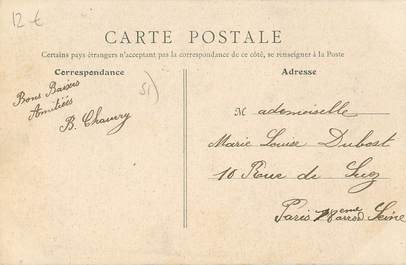 12 €
CARTE POSTALE
Certains pays étrangers n'acceptent pas la correspondance de ce côté, se renseigner à la Poste
Correspondance
Adresse
51)
Bons Baisers
Amitiées
B. Chauvry
Mademoiselle
Marie Louise Dubost
10 Rue de Suez
Paris 18eme arron Seine